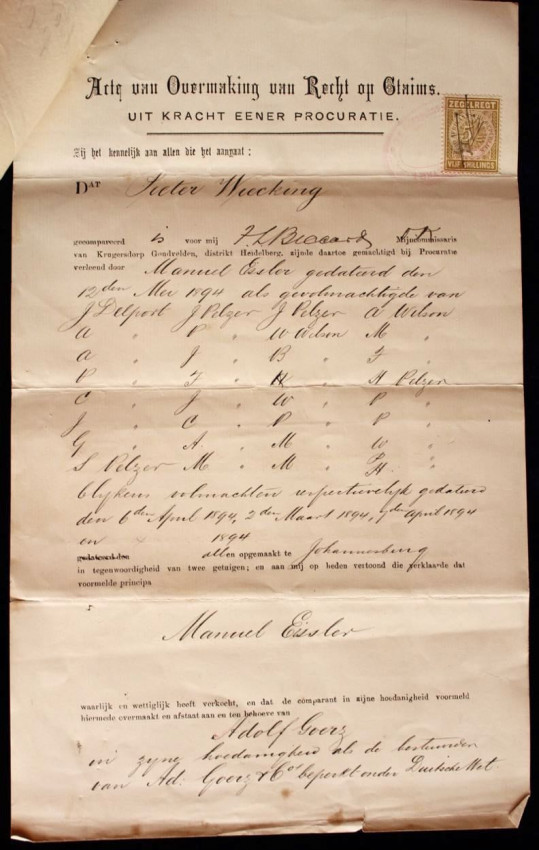 Acte van Overmaking van Recht op Claims.
UIT KRACHT EENER PROCURATIE.
ZEGELREGT
VIJF SHILLINGS
Zij het kennelijk aan allen die het aangaat:
DAT Pieter Wiecking
gecompareerd is voor mij Mijncommissaris
van Krugersdorp Goudvelden, distrikt Heidelberg, zijnde daartoe gemachtigd bij Procuratie
verleend door Manuel Essler gedateerd den
12 den Mei 1894 als gevolmachtigde van
J Delport J Pelzer J Pelzer A Wilson
A " P " W Wilson M "
A " J " B " F "
P " F " H " H Pelzer
C " J " W " P "
J " C " P " P "
G " A. " M " W "
S Pelzer M " M " P "
H.
blykens volmachten respectievelijk gedateerd
den 6 den April 1894, 2 den Maart 1894, 7 den April 1894
en 1894
gedateerd den allen opgemaakt te Johannesburg
in tegenwoordigheid van twee getuigen; en aan mij op heden vertoond die verklaarde dat
voormelde principa
Manuel Eissler
waarlijk en wettiglijk heeft verkocht, en dat de comparant in zijne hoedanigheid voormeld
hiermede overmaakt en afstaat aan en ten behoeve van
Adolf Goerz
in zyne hoedanigheid als de bestuurder
van Ad. Goerz & Co beperkt onder Duitsche Wet